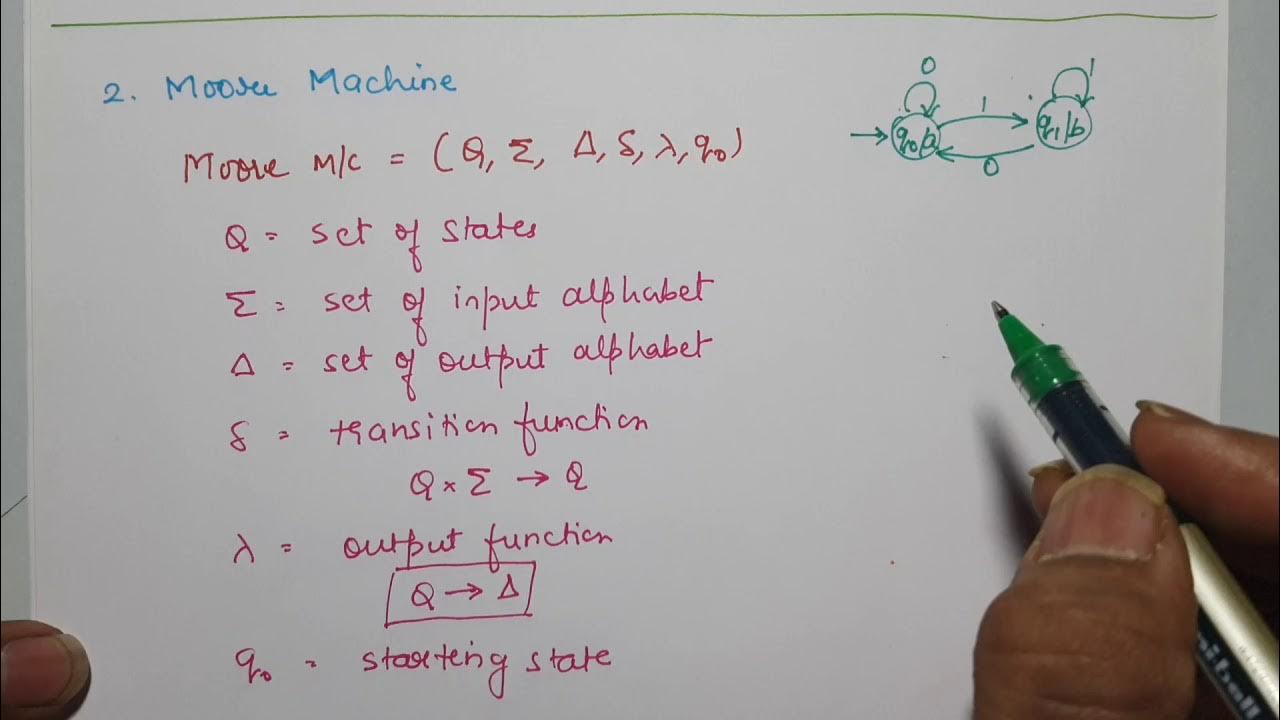 2. Moore Machine
Moore M/C = (Q, Σ, Δ, δ, λ, q₀)
Q = set of states
Σ = set of input alphabet
Δ = set of output alphabet
δ = transition function
Q × Σ → Q
λ = output function
Q → Δ
q₀ = starting state
0
1
q₀/a
1
q₁/b
0